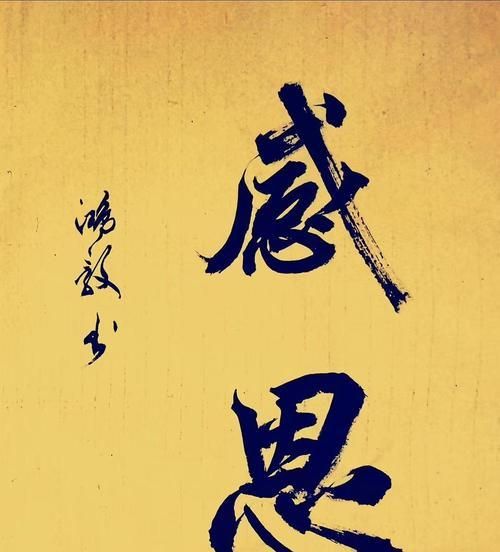 感恩
鸿 书